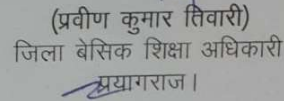 (प्रवीण कुमार तिवारी)
जिला बेसिक शिक्षा अधिकारी
प्रयागराज।